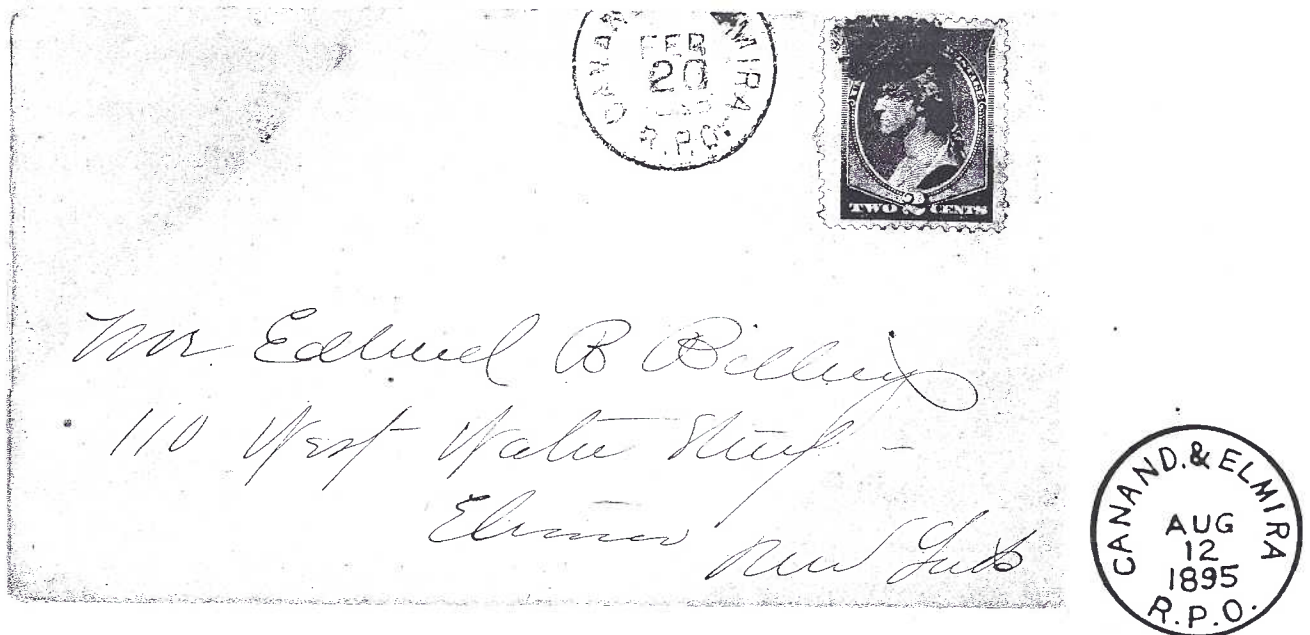 CANAN MIRA
FEB
20
R.P.O.
TWO 2 CENTS
Mr. Edward B Billings
110 West Water Street -
Elmira
New York
CANAND. & ELMIRA
AUG
12
1895
R.P.O.